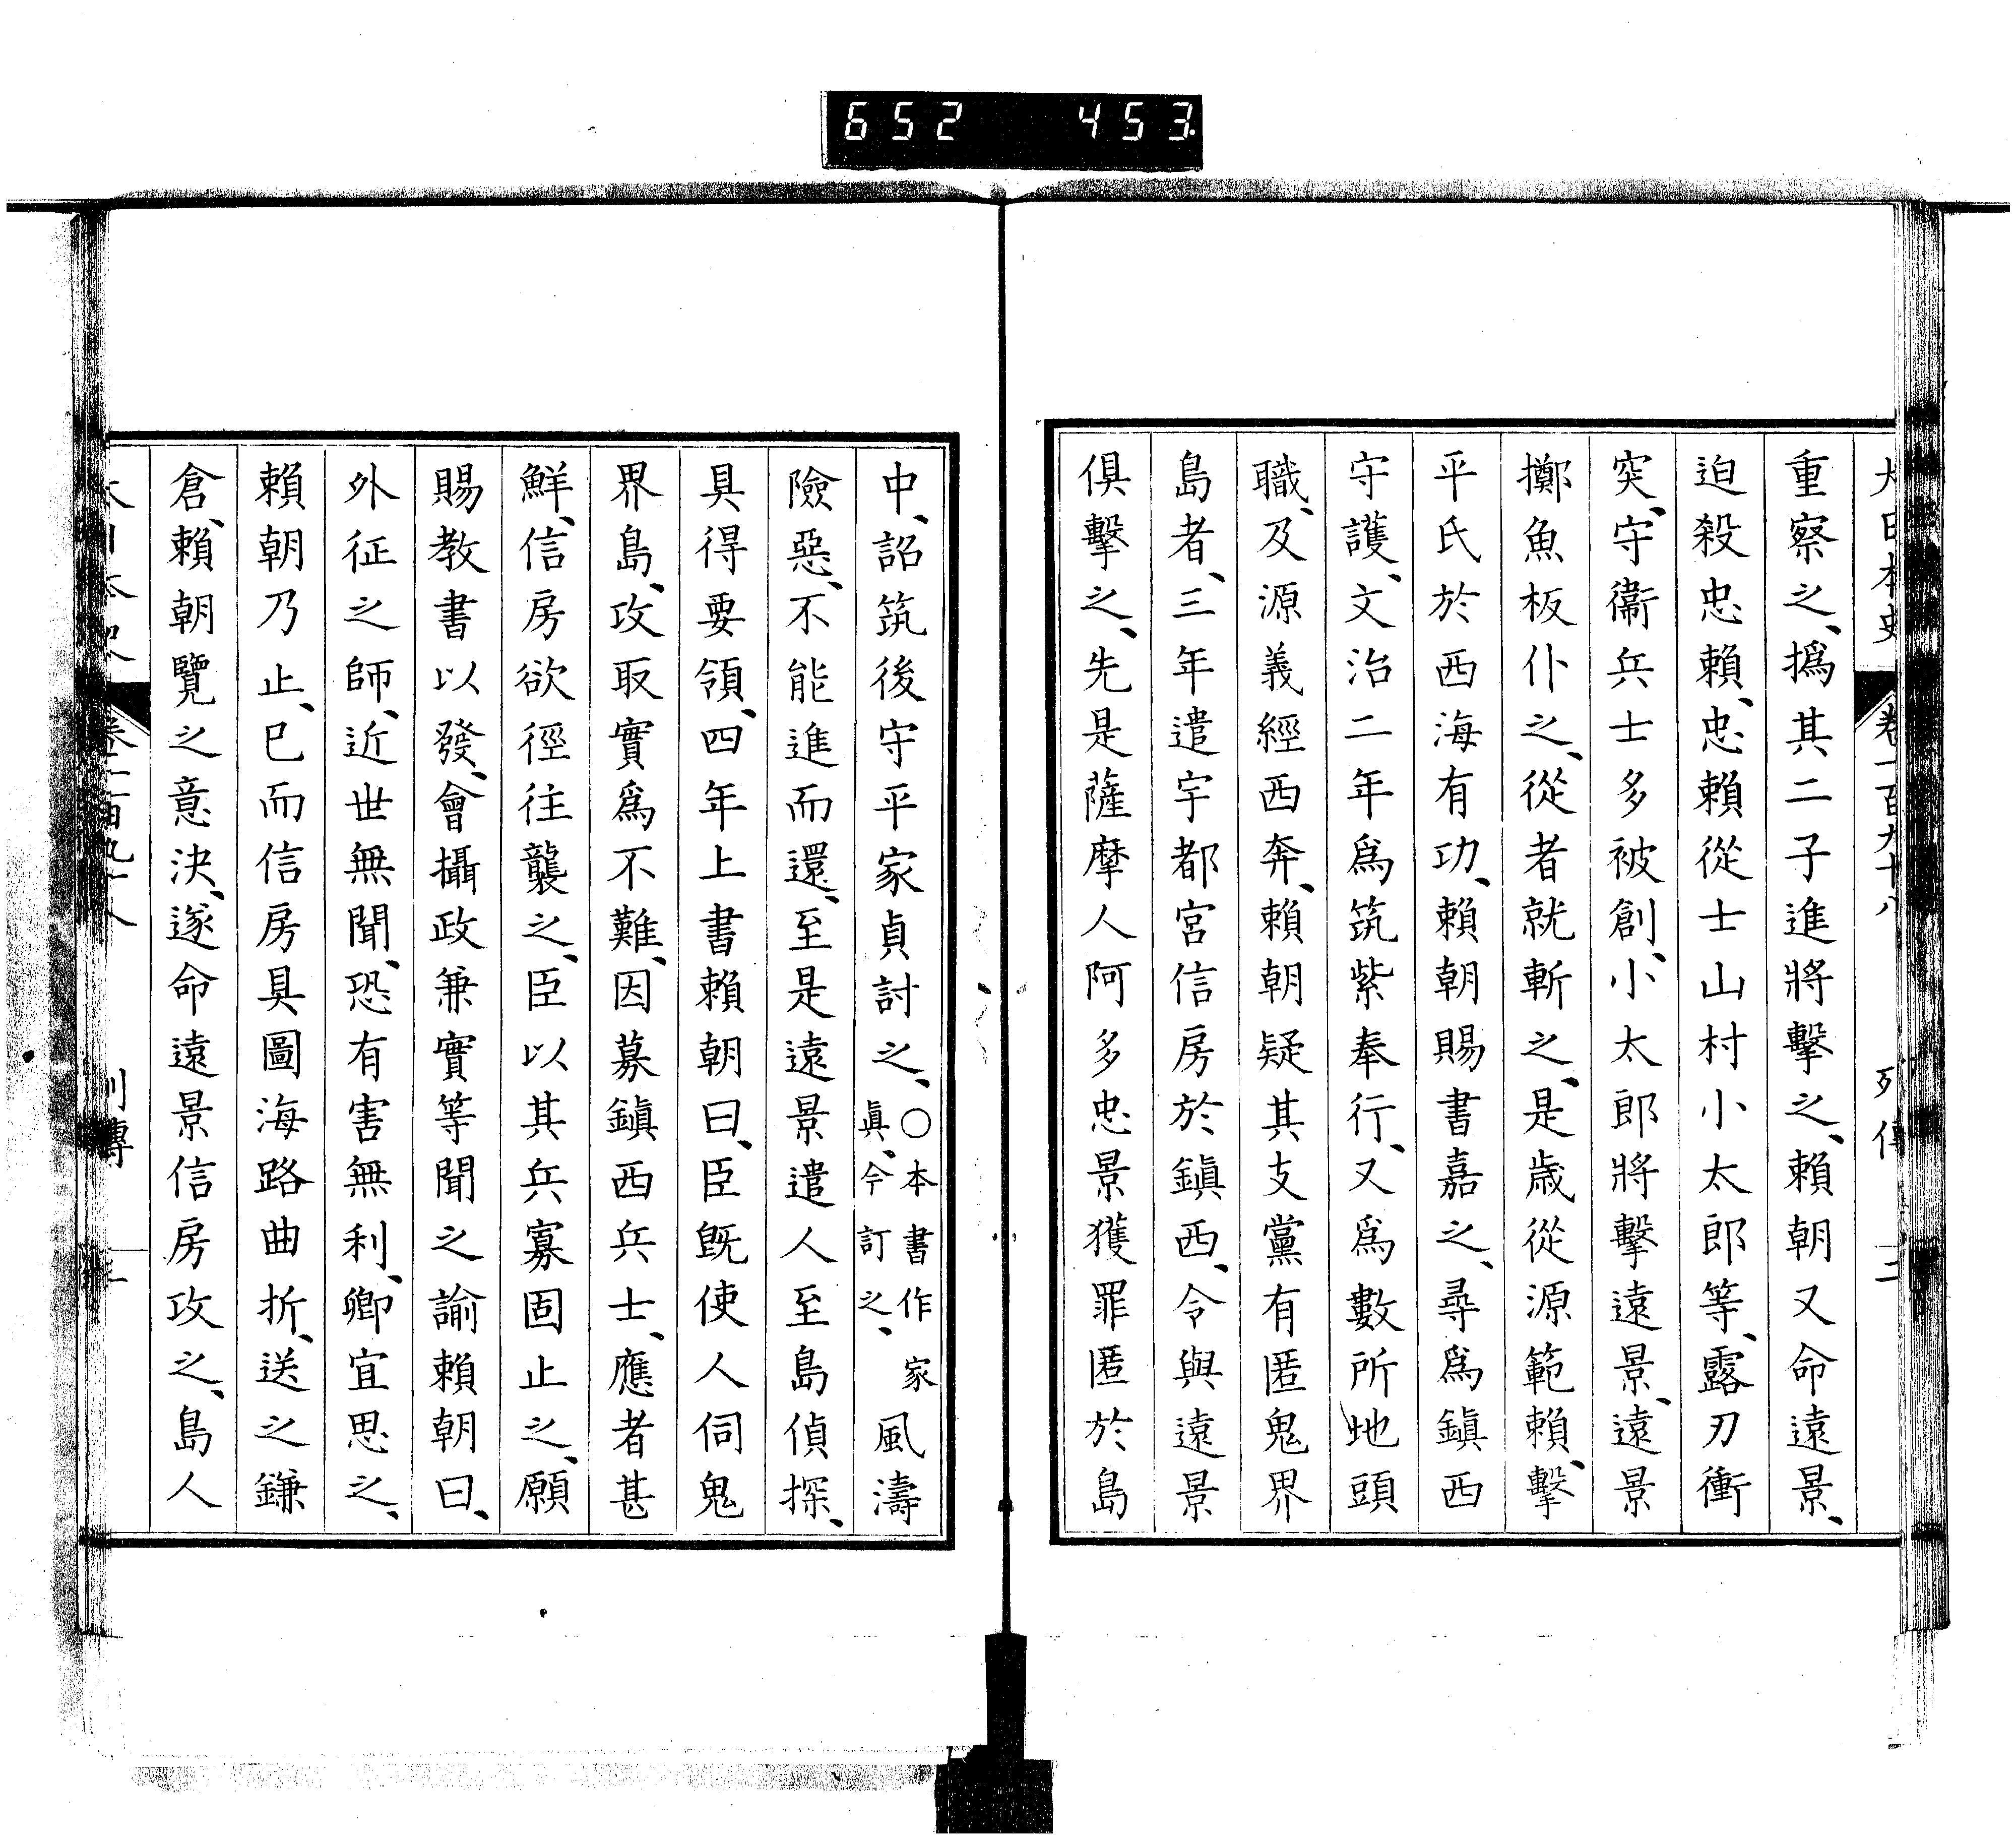 652 453
大日本史 卷一百九十八 列傳 二
重察之、撝其二子進將擊之、賴朝又命遠景、
迫殺忠賴、忠賴從士山村小太郎等、露刃衝
突、守衞兵士多被創、小太郎將擊遠景、遠景
擲魚板仆之、從者就斬之、是歳從源範賴、擊
平氏於西海有功、賴朝賜書嘉之、尋爲鎭西
守護、文治二年爲筑紫奉行、又爲數所地頭
職、及源義經西奔、賴朝疑其支黨有匿鬼界
島者、三年遣宇都宮信房於鎭西、令與遠景
俱擊之、先是薩摩人阿多忠景獲罪匿於島
中、詔筑後守平家貞討之、○本書作家眞、今訂之、風濤
險惡、不能進而還、至是遠景遣人至島偵探、
具得要領、四年上書賴朝曰、臣旣使人伺鬼
界島、攻取實爲不難、因募鎭西兵士、應者甚
鮮、信房欲徑往襲之、臣以其兵寡固止之、願
賜教書以發、會攝政兼實等聞之諭賴朝曰、
外征之師、近世無聞、恐有害無利、卿宜思之、
賴朝乃止、已而信房具圖海路曲折、送之鎌
倉、賴朝覽之意決、遂命遠景信房攻之、島人